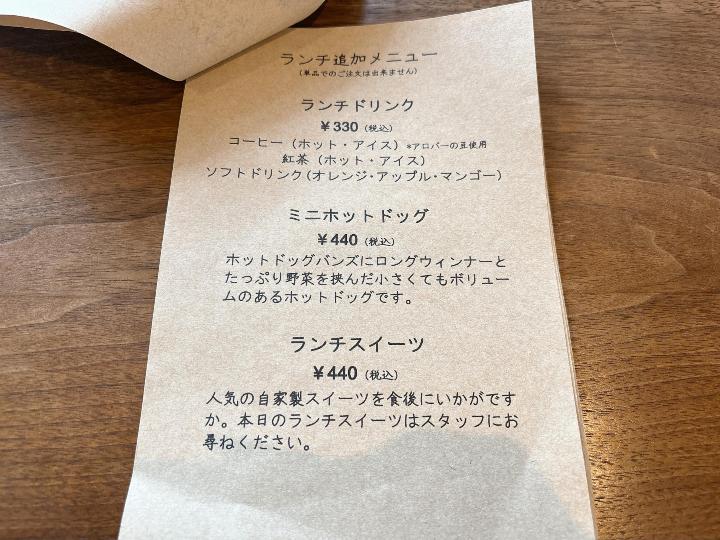 ランチ追加メニュー
(単品でのご注文は出来ません)
ランチドリンク
¥330 (税込)
コーヒー (ホット・アイス) *アロバーの豆使用
紅茶 (ホット・アイス)
ソフトドリンク(オレンジ・アップル・マンゴー)
ミニホットドッグ
¥440 (税込)
ホットドッグバンズにロングウィンナーと
たっぷり野菜を挟んだ小さくてもボリュー
ムのあるホットドッグです。
ランチスイーツ
¥440 (税込)
人気の自家製スイーツを食後にいかがです
か。本日のランチスイーツはスタッフにお
尋ねください。